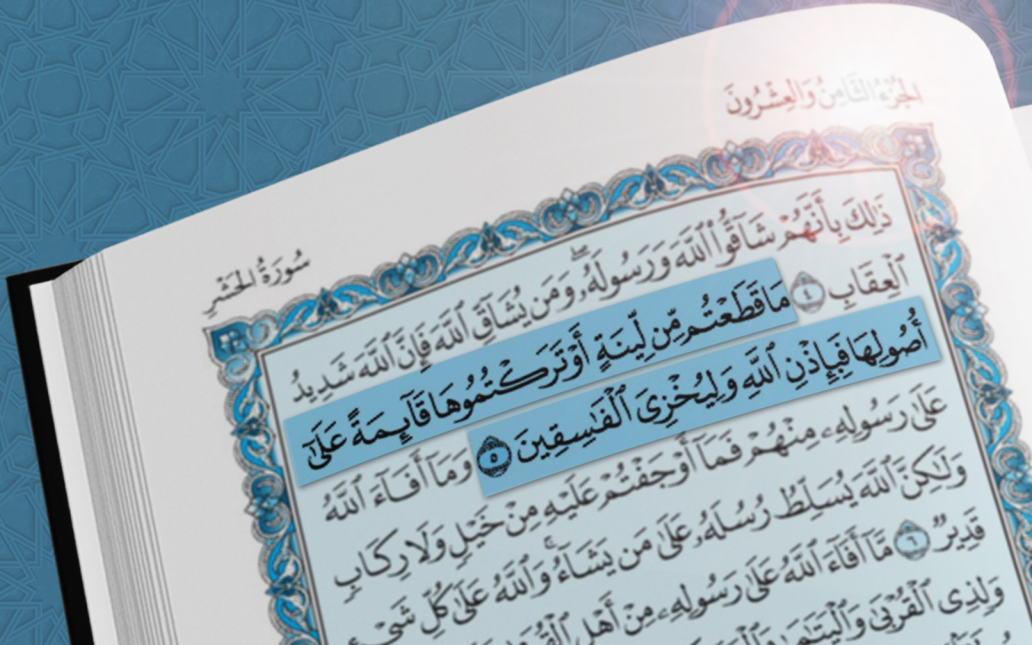 الجُزْءُ الثَّامِنُ وَالعِشْرُونَ
سُورَةُ الحَشْرِ
ذَٰلِكَ بِأَنَّهُمْ شَآقُّوا۟ ٱللَّهَ وَرَسُولَهُۥ ۖ وَمَن يُشَآقِّ ٱللَّهَ فَإِنَّ ٱللَّهَ شَدِيدُ
ٱلْعِقَابِ ٤ مَا قَطَعْتُم مِّن لِّينَةٍ أَوْ تَرَكْتُمُوهَا قَآئِمَةً عَلَىٰٓ
أُصُولِهَا فَبِإِذْنِ ٱللَّهِ وَلِيُخْزِىَ ٱلْفَٰسِقِينَ ٥ وَمَآ أَفَآءَ ٱللَّهُ
عَلَىٰ رَسُولِهِۦ مِنْهُمْ فَمَآ أَوْجَفْتُمْ عَلَيْهِ مِنْ خَيْلٍ وَلَا رِكَابٍ
وَلَٰكِنَّ ٱللَّهَ يُسَلِّطُ رُسُلَهُۥ عَلَىٰ مَن يَشَآءُ ۚ وَٱللَّهُ عَلَىٰ كُلِّ شَىْءٍ
قَدِيرٌ ٦ مَّآ أَفَآءَ ٱللَّهُ عَلَىٰ رَسُولِهِۦ مِنْ أَهْلِ
وَلِذِى ٱلْقُرْبَىٰ وَٱلْيَتَٰمَىٰ